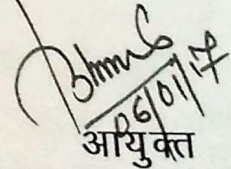 06/01/17
आयुक्त